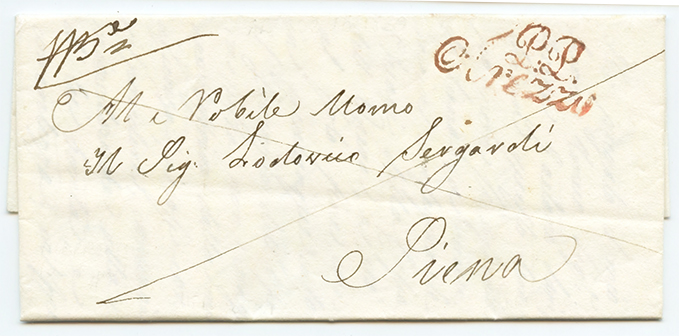 P.P.
Arezzo
Al e Nobile Uomo
Il Sig. Lodovico Sergardi
Siena